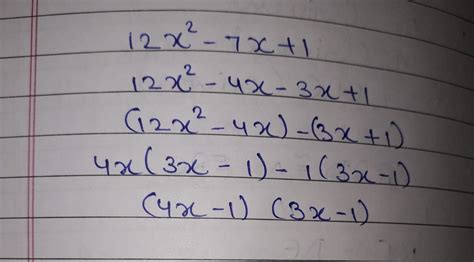 12x² - 7x + 1
12x² - 4x - 3x + 1
(12x² - 4x) - (3x + 1)
4x (3x - 1) - 1 (3x - 1)
(4x - 1) (3x - 1)